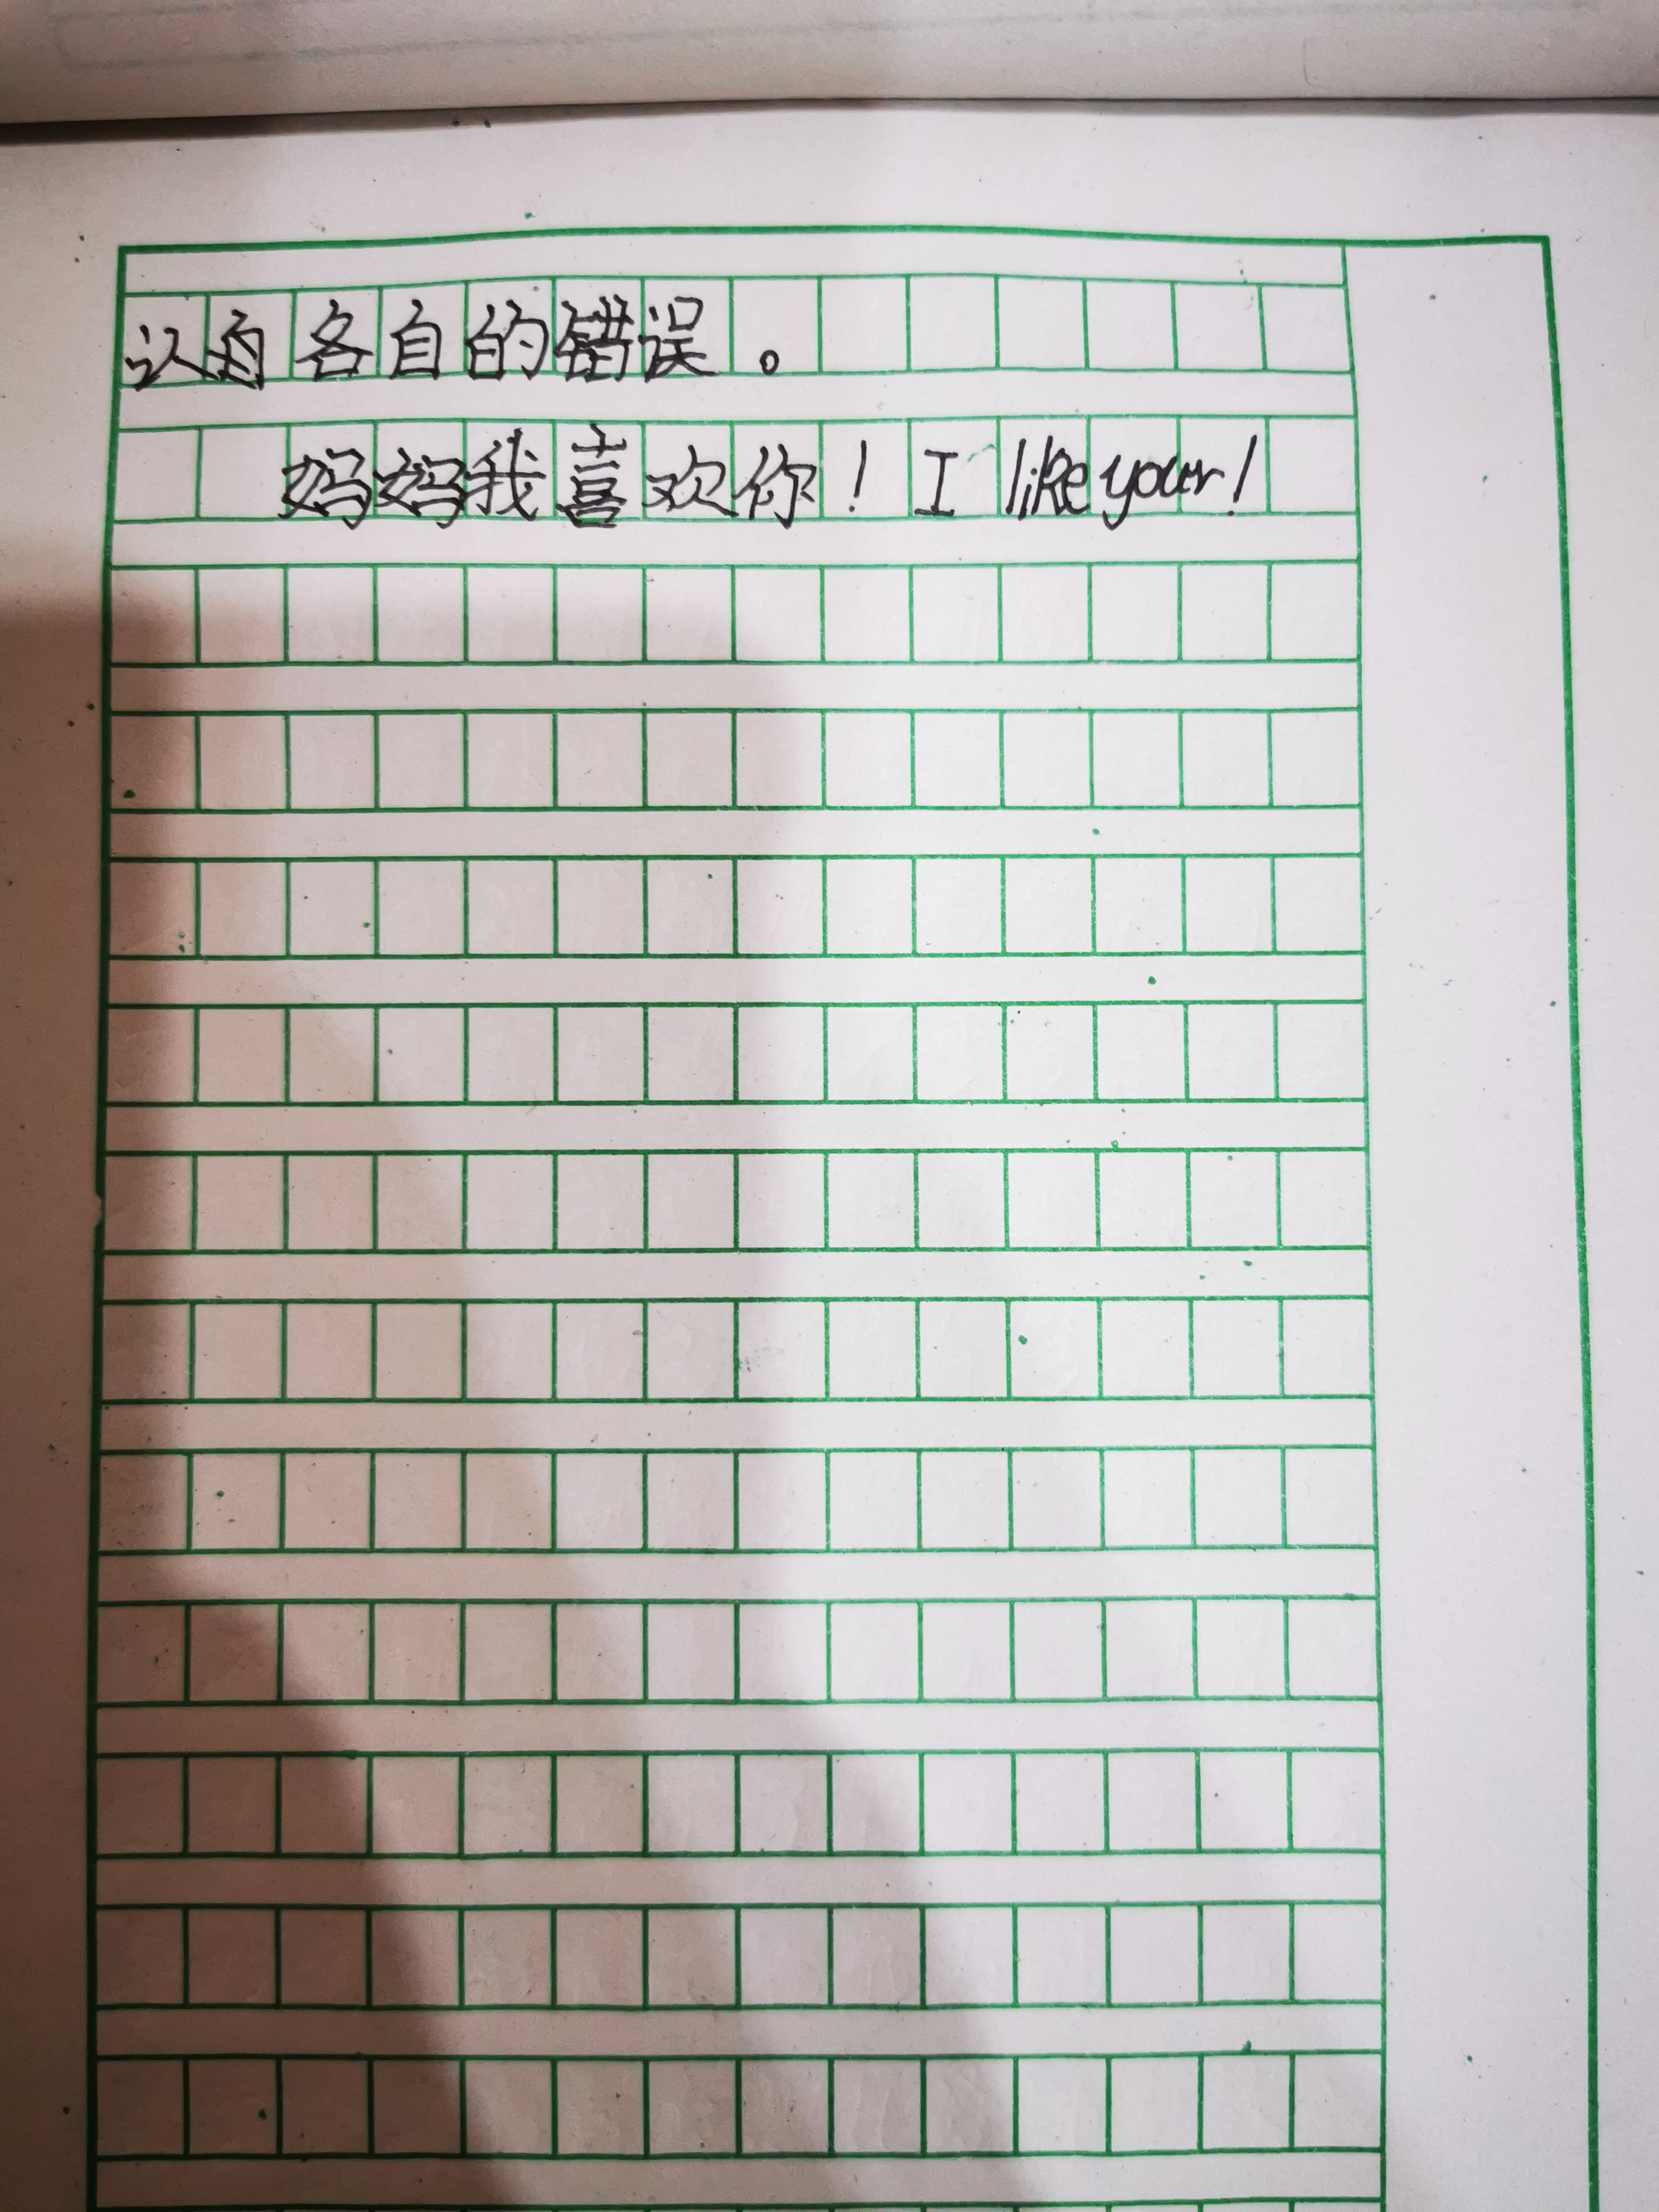 认自各自的错误。
妈妈我喜欢你！I like your!